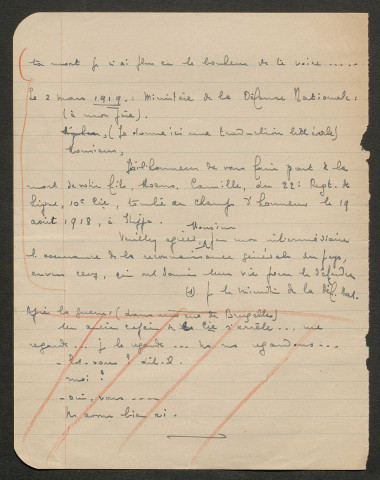 ta mort je n'ai plus eu le bonheur de te voir .....
Le 2 mars 1919.: Ministère de la Défense Nationale:
(à mon père).
(Je donne ici une traduction littérale)
Monsieur,
J'ai l'honneur de vous faire part de la
mort de votre fils, Camille, du 22e Regt. de
ligne, 10e Cie, tombé au champ d'honneur le 19
août 1918, à
Monsieur
Veuillez agréer, par mon intermédiaire
l'assurance de la reconnaissance générale du pays,
envers ceux, qui ont donné leur vie pour le défendre
(s) p. le ministre de la Déf. Nat.
Après la guerre: (dans une rue de Bruxelles)
Un ancien de la Cie s'arrête... me
regarde... je le regarde... ns ns regardons...
- Est-vous? dit-il.
moi?
- oui, vous .....